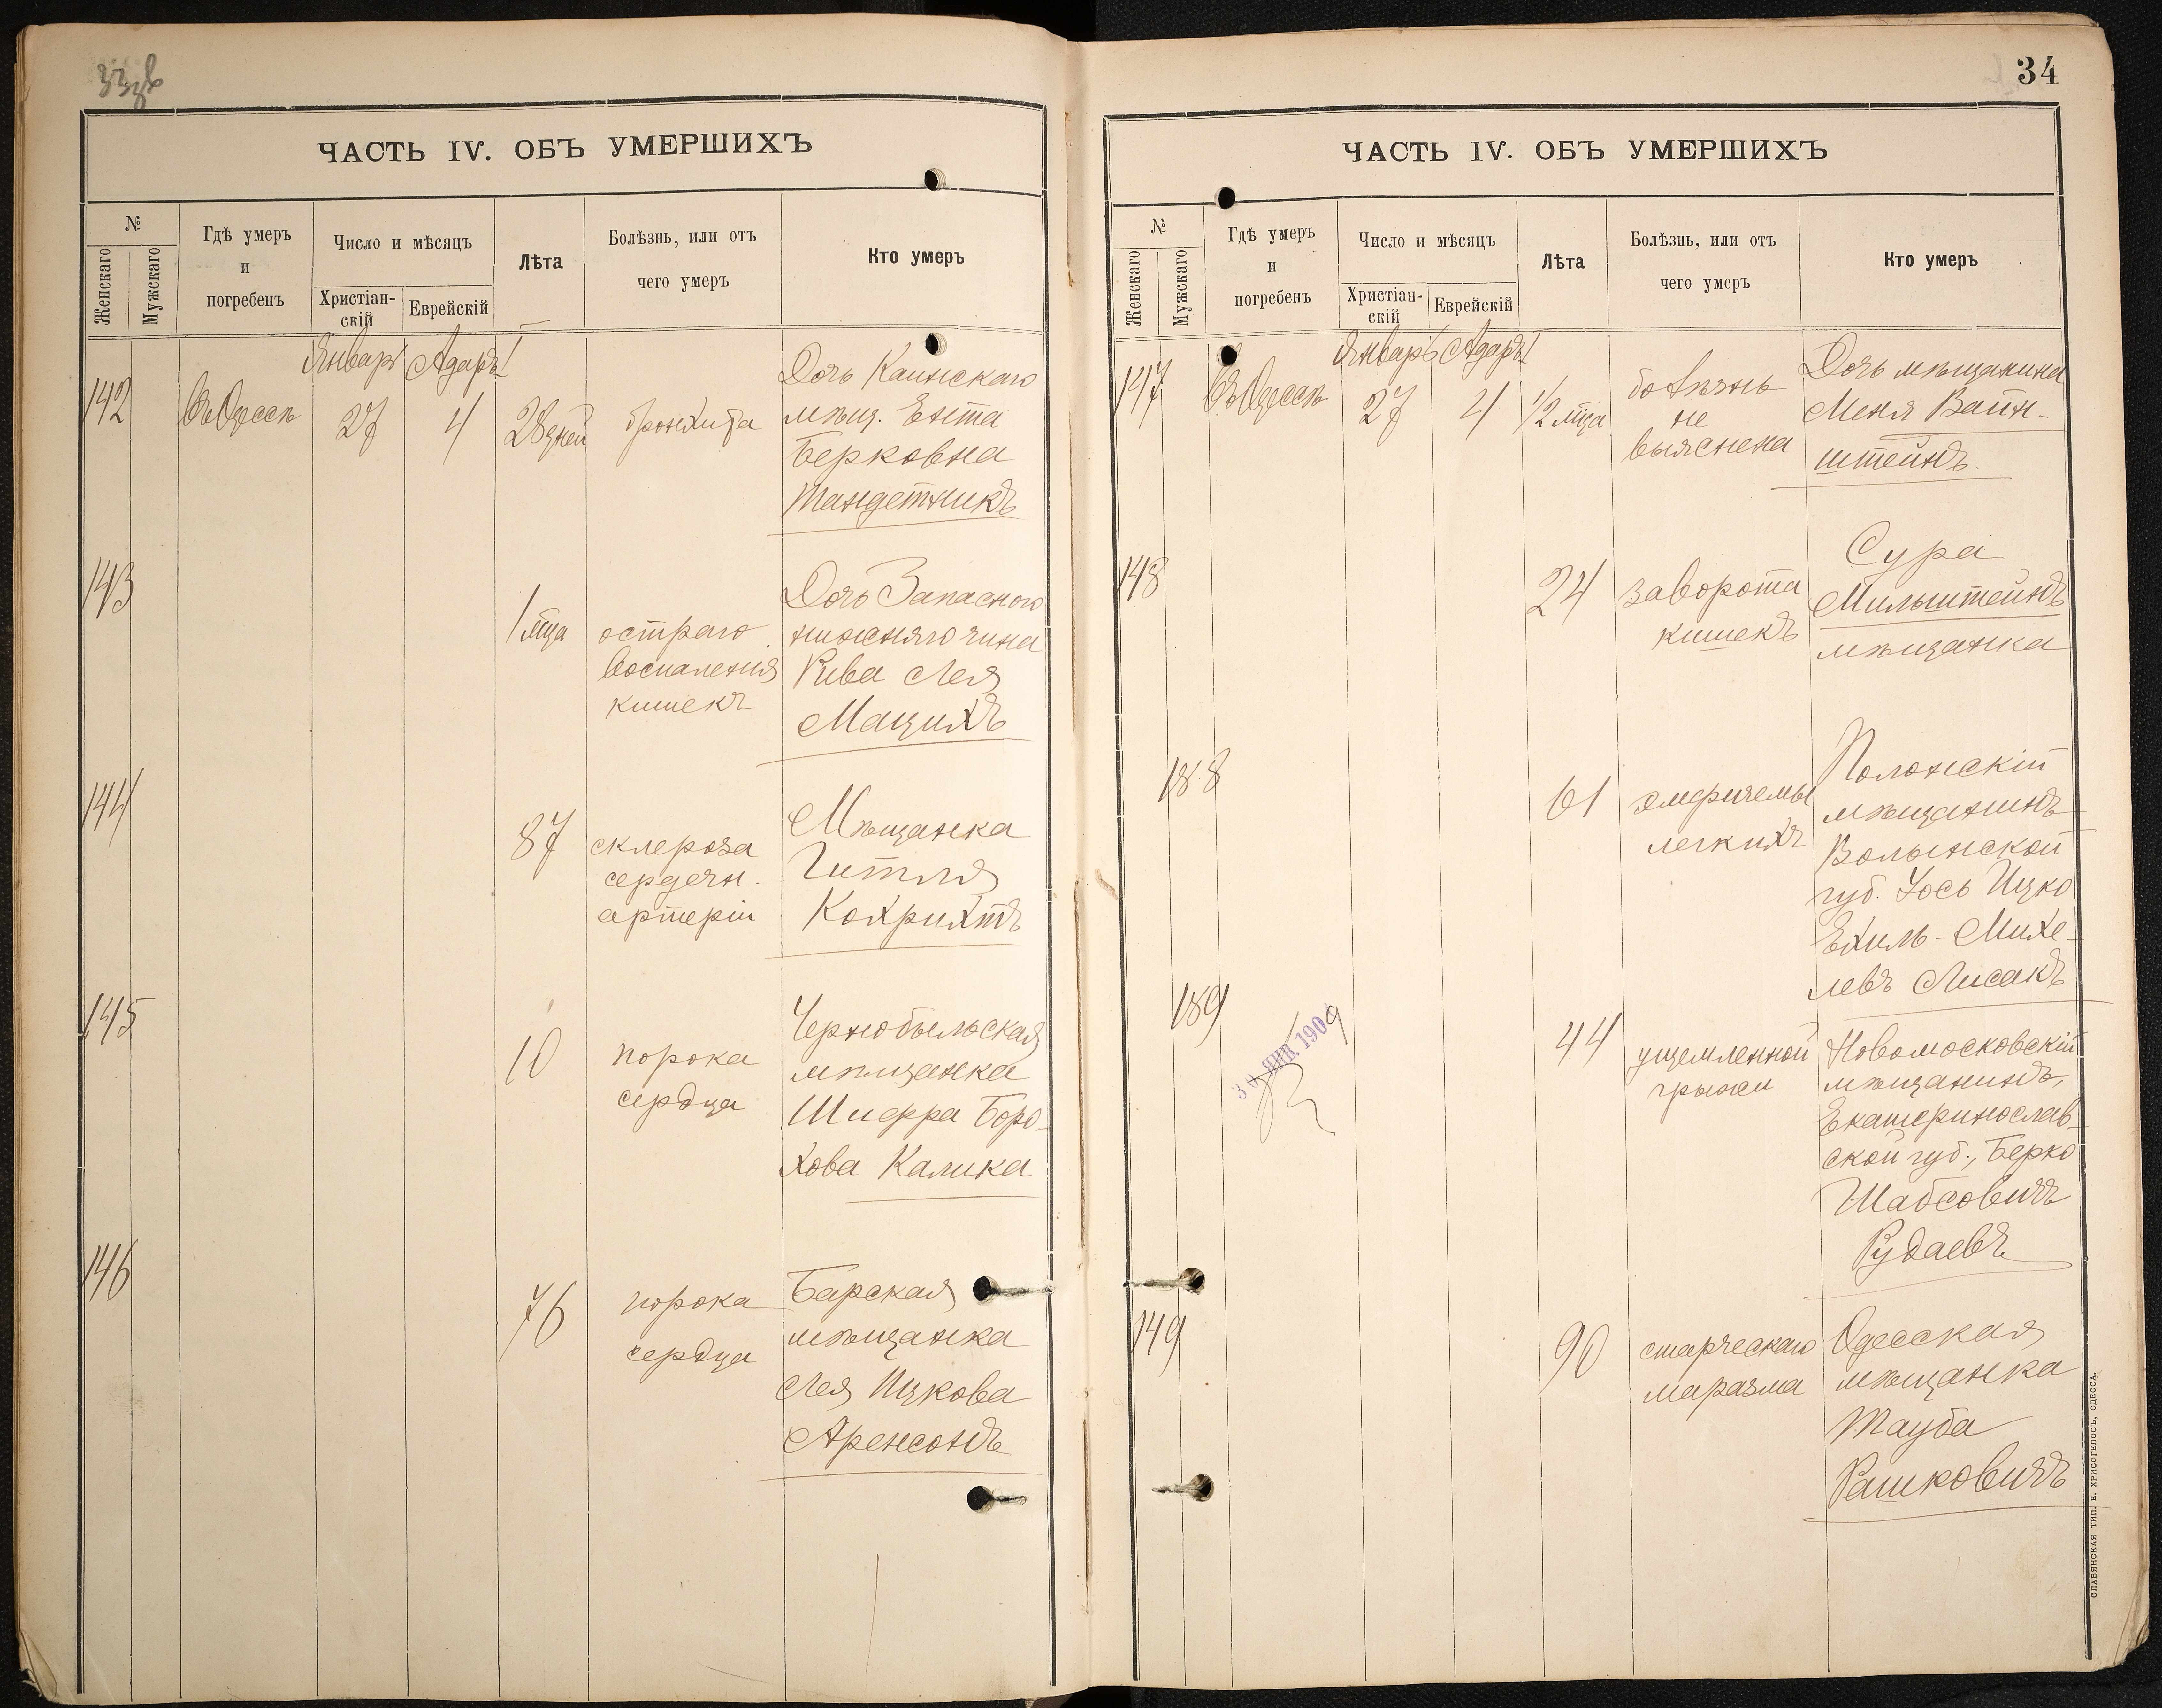 ЧАСТЬ IV. ОБЪ УМЕРШИХЪ
№
Женскаго
Мужскаго
Гдѣ умеръ
и
погребенъ
Число и мѣсяцъ
Христіан-
скій
Еврейскій
Лѣта
Болѣзнь, или отъ
чего умеръ
Кто умеръ
Январь Адаръ I
142
Въ Одессѣ
27
4
28 дней
бронхита
Дочь Каинскаго
мѣщ. Ента
Берковна
Тандетникъ
143
1 мца
остраго
воспаленія
кишекъ
Дочь Запасного
нижняго чина
Рива Лея
Мацихъ
144
87
склероза
сердечн.
артеріи
Мѣщанка
Гитля
Кохрихтъ
145
10
порока
сердца
Чернобыльская
мѣщанка
Шифра Боро-
хова Калика
146
76
порока
сердца
Барская
мѣщанка
Лея Ицкова
Аренсонъ
34
ЧАСТЬ IV. ОБЪ УМЕРШИХЪ
№
Женскаго
Мужскаго
Гдѣ умеръ
и
погребенъ
Число и мѣсяцъ
Христіан-
скій
Еврейскій
Лѣта
Болѣзнь, или отъ
чего умеръ
Кто умеръ
Январь Адаръ I
147
Въ Одессѣ
27
4
1/2 мца
болѣзнь
не
выяснена
Дочь мѣщанина
Меня Вайн-
штейнъ
148
24
заворота
кишекъ
Сура
Мильштейнъ
мѣщанка
188
61
эмфиземы
легкихъ
Полонскій
мѣщанинъ
Волынской
губ. Іось Ицко
Ехиль-Михе-
левъ Лисакъ
189
30 ЯНВ. 1909
44
ущемленной
грыжи
Новомосковскій
мѣщанинъ,
Екатеринослав-
ской губ., Берко
Шабсовичъ
Рудаевъ
149
90
старческаго
маразма
Одесская
мѣщанка
Тауба
Рашковичъ
СЛАВЯНСКАЯ ТИП. Е. ХРИСОГЕЛОСЪ, ОДЕССА.